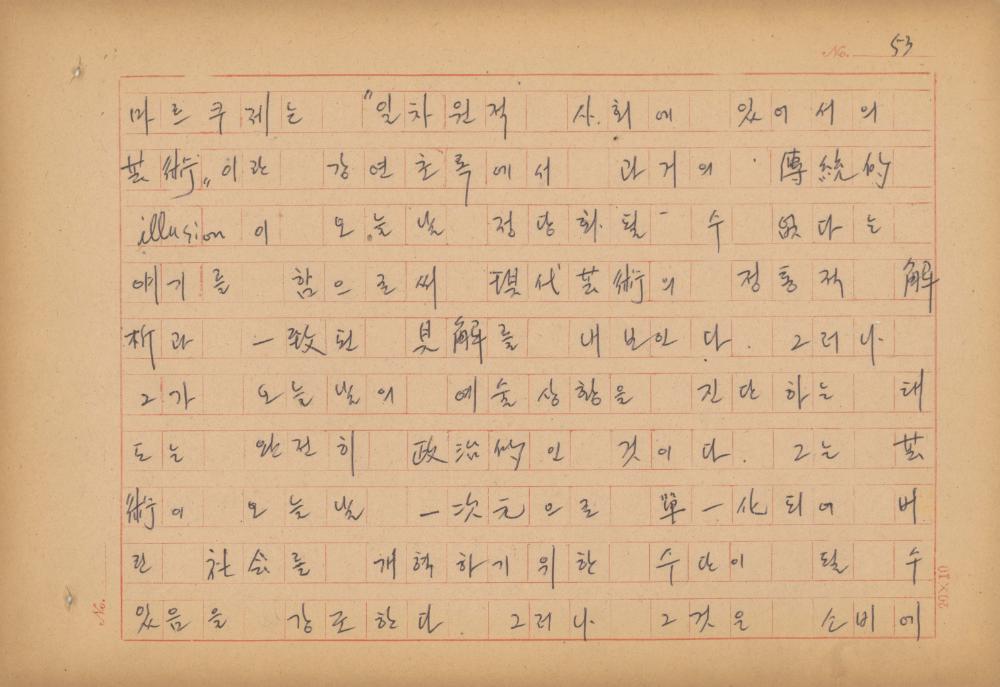 No. 53
마르쿠제는 "일차원적 사회에 있어서의
芸術"이란 강연초록에서 과거의 傳統的
illusion이 오늘날 정당화될 수 없다는
얘기를 함으로써 現代芸術의 정통적 解
析과 一致된 見解를 내보인다. 그러나
그가 오늘날의 예술상황을 진단하는 태
도는 완전히 政治的인 것이다. 그는 芸
術이 오늘날 一次元으로 單一化되어 버
린 社会를 개혁하기위한 수단이 될 수
있음을 강조한다. 그러나 그것을 소비에
No.
20×10